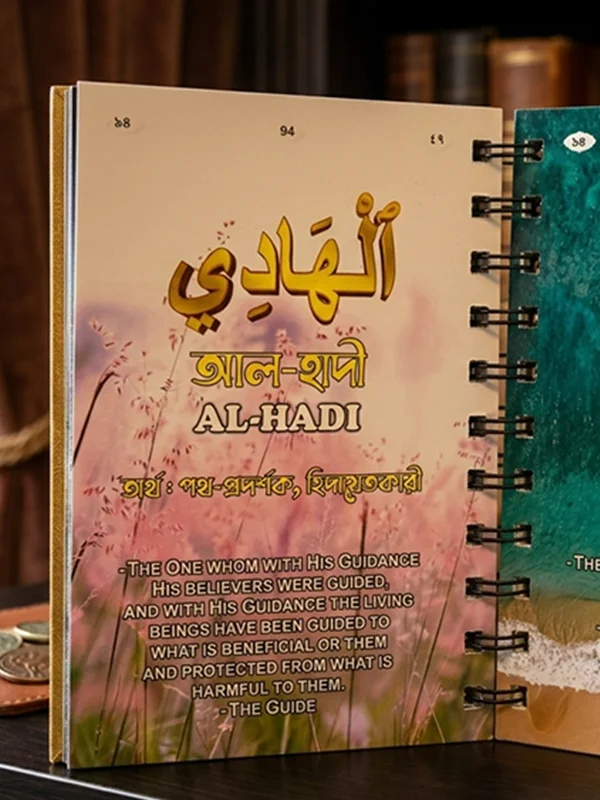 ৯৪ 94 ٤٩
ٱلْهَادِي
আল-হাদী
AL-HADI
অর্থ : পথ-প্রদর্শক, হিদায়েতকারী
-The One whom with His Guidance
His believers were guided,
and with His Guidance the living
beings have been guided to
what is beneficial or them
and protected from what is
harmful to them.
-The Guide
৯৪